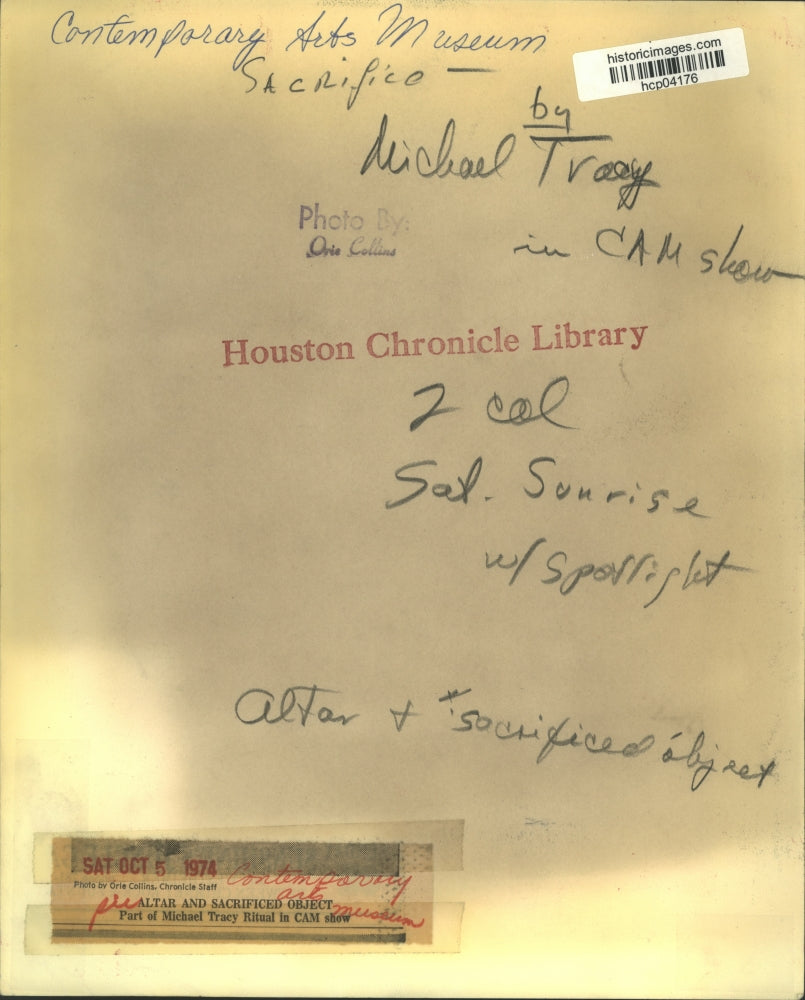 Contemporary Arts Museum
historicimages.com
hcp04176
Sacrifico —
by
Michael Tracy
Photo By:
Orie Collins
in CAM show
Houston Chronicle Library
2 col
Sat. Sunrise
w/ Spotlight
Altar + "sacrificed object
SAT OCT 5 1974
Contemporary
Photo by Orie Collins, Chronicle Staff
arts
ALTAR AND SACRIFICED OBJECT
museum
Part of Michael Tracy Ritual in CAM show